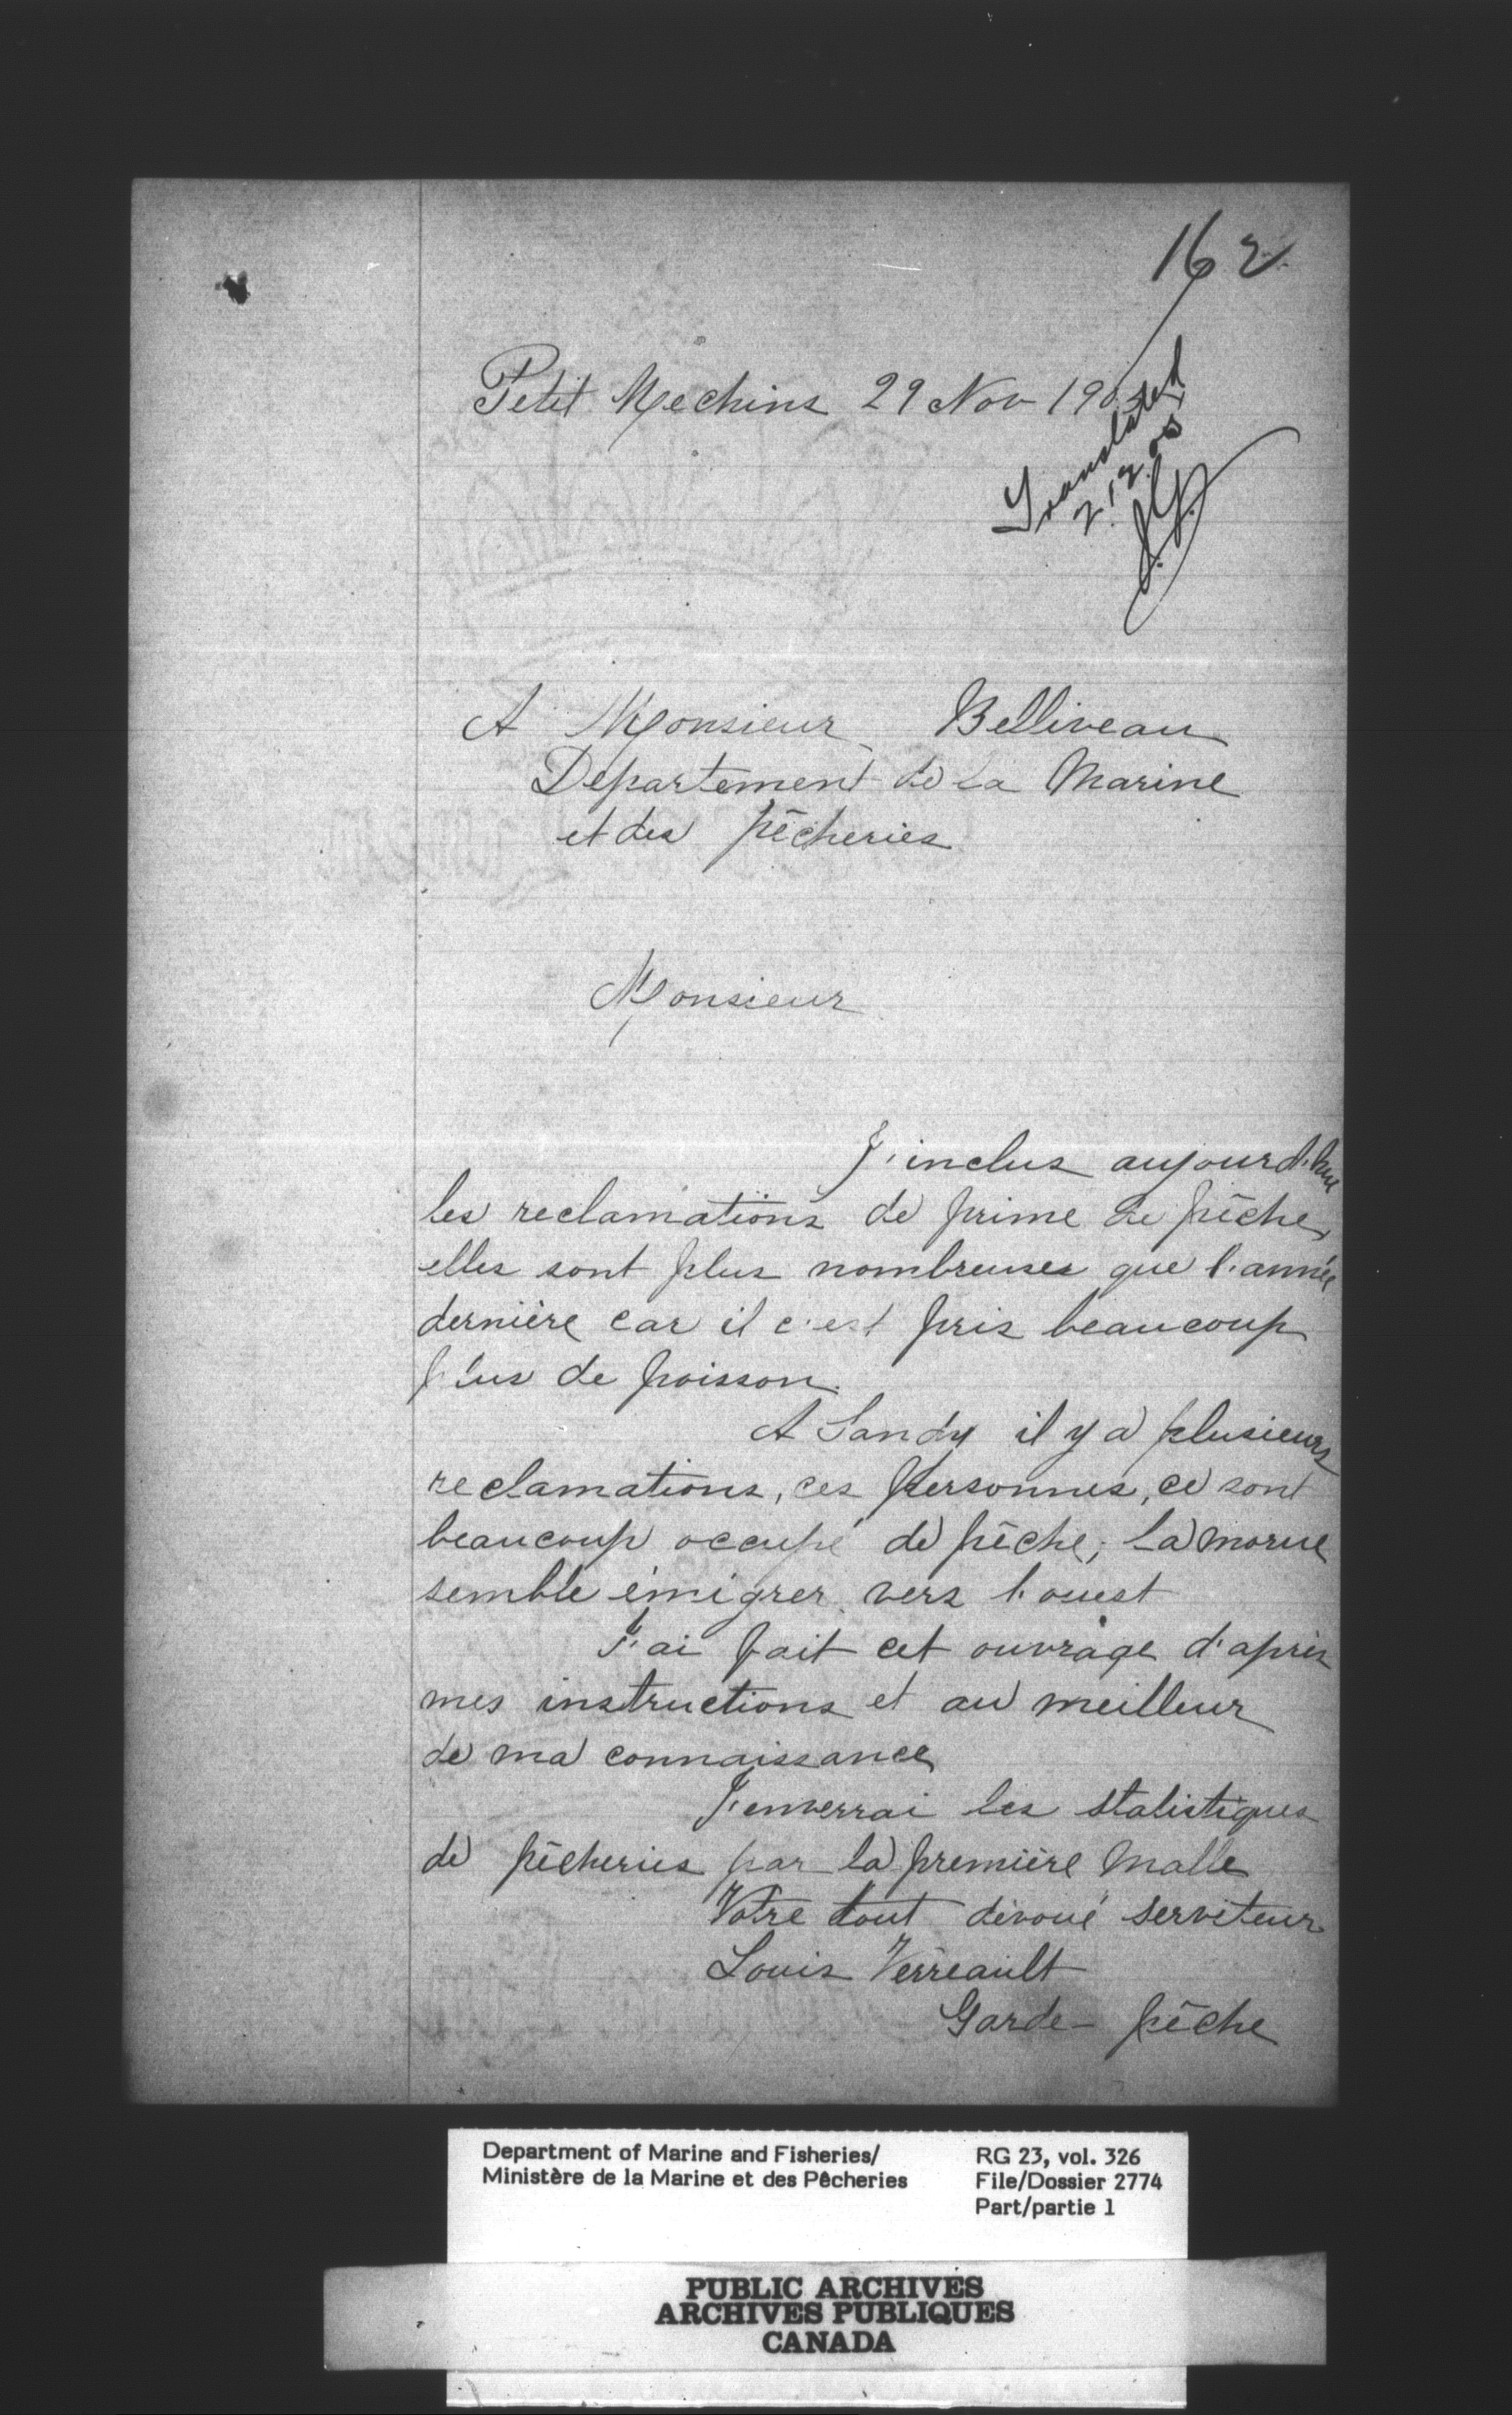 162
Petit Mechins 29 Nov 190
Translated
2.12.05
A Monsieur Belliveau
Departement de la Marine
et des pêcheries
Monsieur
J'inclus aujourd'hui
les reclamations de prime de pêche,
elles sont plus nombreuses que l'année
dernière car il c'est pris beaucoup
plus de poisson.
A Sandy il y a plusieurs
reclamations, ces personnes, ce sont
beaucoup occupé de pêche; La morue
semble émigrer vers l'ouest
J'ai fait cet ouvrage d'après
mes instructions et au meilleur
de ma connaissance
J'enverrai les statistiques
de pêcheries par la première Malle
Votre tout dévoué serviteur
Louis Verreault
Garde-pêche
Department of Marine and Fisheries/
Ministère de la Marine et des Pêcheries
RG 23, vol. 326
File/Dossier 2774
Part/partie 1
PUBLIC ARCHIVES
ARCHIVES PUBLIQUES
CANADA